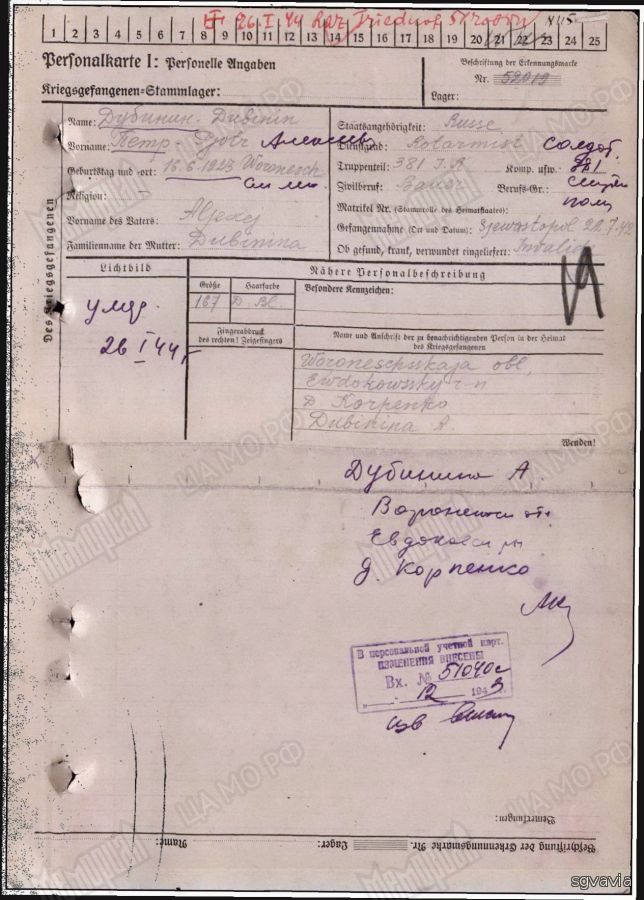 † 26.I.44
1 2 3 4 5 6 7 8 9 10 11 12 13 14 15 16 17 18 19 20 21 22 23 24 25
Personalkarte I: Personelle Angaben
Kriegsgefangenen-Stammlager:
Beschriftung der Erkennungsmarke
Nr.
Lager:
Des Kriegsgefangenen
Name: Дубинин - Dubinin
Vorname: Петр - Pjotr Алексеев
Geburtstag und -ort: 16.6.1923 Woronesch
Religion:
Vorname des Vaters: Aljexej
Familienname der Mutter: Dubinina
Staatsangehörigkeit: Russe
Dienstgrad: Rotarmist солдат
Truppenteil: 381 I.R Komp. usw.: 381
Zivilberuf: Bauer Berufs-Gr.:
Matrikel Nr. (Stammrolle des Heimatstaates):
Gefangennahme (Ort und Datum): Sjewastopol
Ob gesund, krank, verwundet eingeliefert: Invalide
Lichtbild
умер
26 I 44 г
Nähere Personalbeschreibung
Größe
Haarfarbe
Besondere Kennzeichen:
167
D. Bl.
Fingerabdruck
des rechten! Zeigefingers
Name und Anschrift der zu benachrichtigenden Person in der Heimat
des Kriegsgefangenen
Woroneschskaja obl,
Ewdokowsky r-n
D. Korpenko
Dubinina A.
Wenden!
Дубинина А
Евдаков
д. Корпенко
В персональной учетной карт.
ИЗМЕНЕНИЯ ВНЕСЕНЫ
Вх. № 51040с
12 194
Bemerkungen:
Beschriftung der Erkennungsmarke Nr. Lager: Name:
Мемориал
ЦАМО РФ
sgvavia